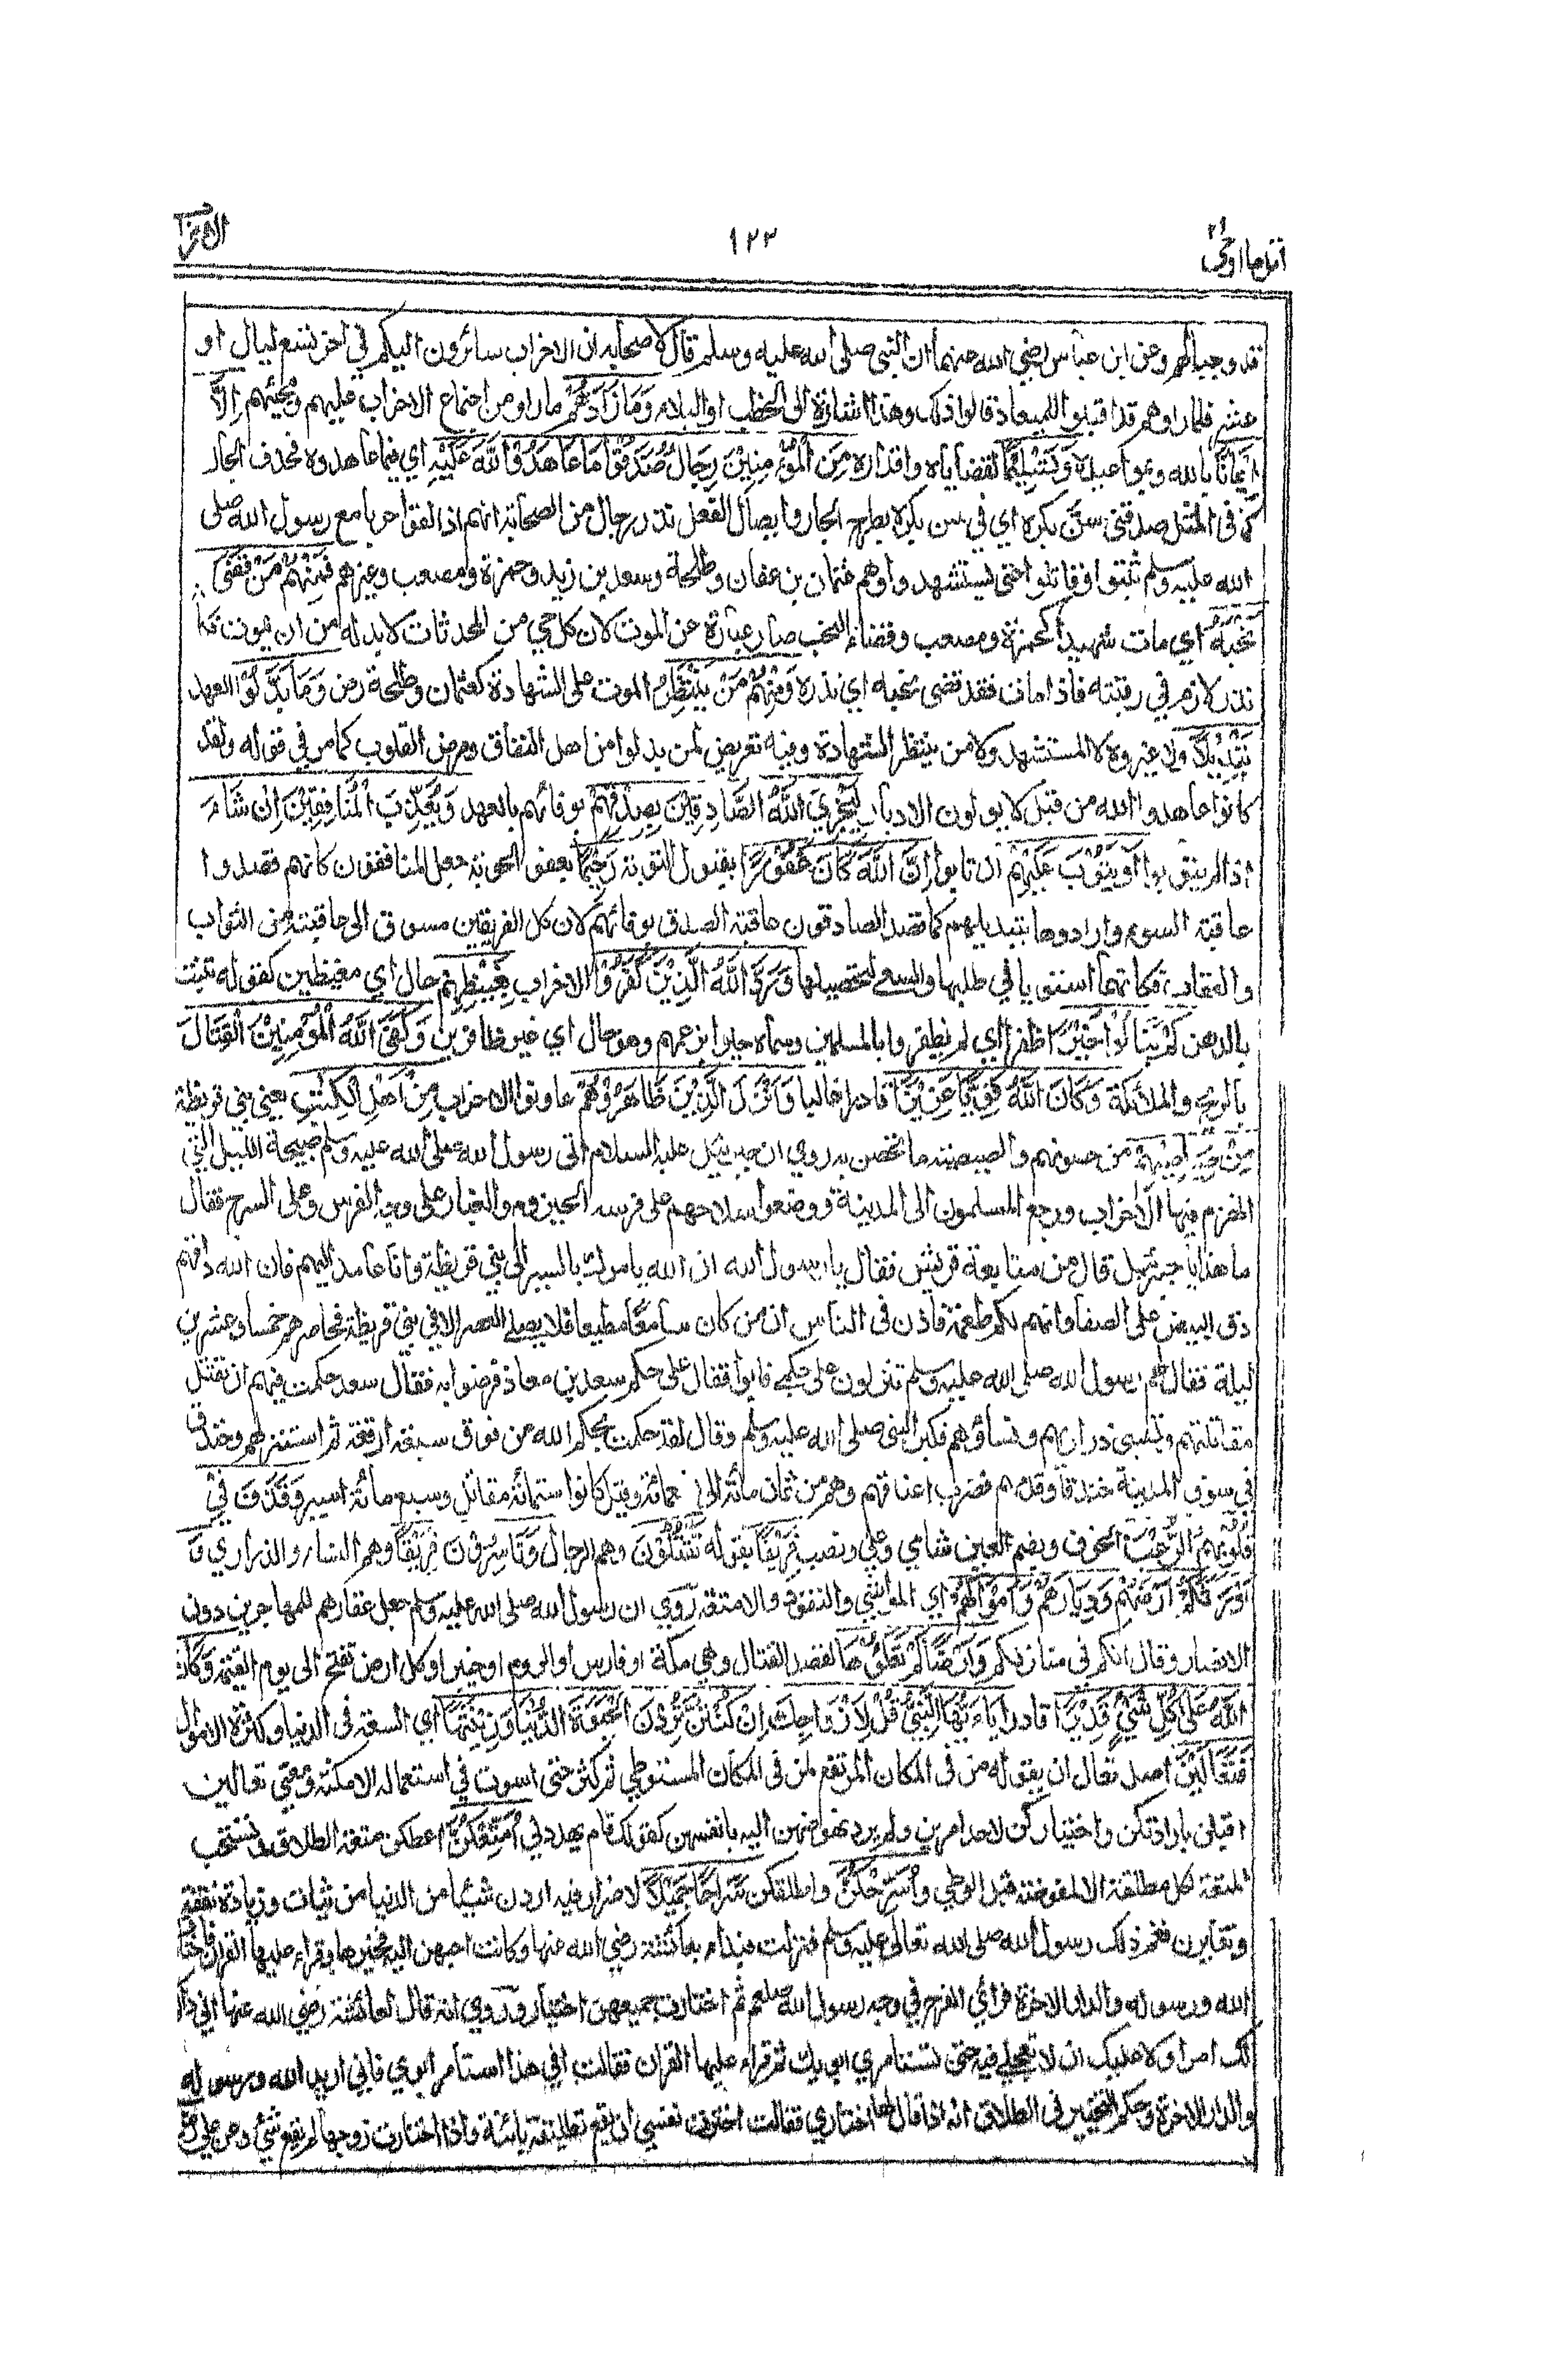 اتل ما اوحی ٢١
١٢٣
الاحزاب
قد وجبا لهم وعن ابن عباس رضي الله عنهما ان النبي صلى الله عليه وسلم قال لاصحابه ان الاحزاب سائرون اليكم في اخر تسع ليال او
عشر فلما راوهم قد اقبلوا للميعاد قالوا ذلك وهذا اشارة الى الخطب او البلاء وَمَا زَادَهُمْ ما راو من اجتماع الاحزاب عليهم ومجيئهم اِلَّا
اِيْمَانًا بالله وبمواعيده وَّتَسْلِيْمًا لقضاياه واقداره مِنَ الْمُؤْمِنِيْنَ رِجَالٌ صَدَقُوْا مَا عَاهَدُوا اللّٰهَ عَلَيْهِ اي فيما عاهدوه فحذف الجار
كما في المثل صدقني سنَّ بكره اي في سن بكره بطرح الجار وايصال الفعل نذر رجال من الصحابة انهم اذا لقوا حربا مع رسول الله صلى
الله عليه وسلم ثبتوا وقاتلوا حتى يستشهدوا وهم عثمان بن عفان وطلحة وسعد بن زيد وحمزة ومصعب وغيرهم فَمِنْهُمْ مَّنْ قَضٰى
نَحْبَهٗ اي مات شهيدا كحمزة ومصعب وقضاء النحب صار عبارة عن الموت لان كل حي من المحدثات لا بد له من ان يموت فكأنه
نذر لازم في رقبته فاذا مات فقد قضى نحبه اي نذره وَمِنْهُمْ مَّنْ يَّنْتَظِرُ الموت على الشهادة كعثمان وطلحة رض وَمَا بَدَّلُوْا العهد
تَبْدِيْلًا ولا غيروه لا المستشهد ولا من ينتظر الشهادة وفيه تعريض لمن بدلوا من اهل النفاق ومرض القلوب كما مر في قوله ولقد
كانوا عاهدوا الله من قبل لا يولون الادبار لِيَجْزِيَ اللّٰهُ الصَّادِقِيْنَ بِصِدْقِهِمْ بوفائهم بالعهد وَيُعَذِّبَ الْمُنَافِقِيْنَ اِنْ شَاءَ
اذا لم يتوبوا اَوْ يَتُوْبَ عَلَيْهِمْ ان تابوا اِنَّ اللّٰهَ كَانَ غَفُوْرًا بقبول التوبة رَّحِيْمًا بعفو الحوبة جعل المنافقون كانهم قصدوا
عاقبة السوء وارادوها بتبديلهم كما قصد الصادقون عاقبة الصدق بوفائهم لان كل الفريقين مسوق الى عاقبته من الثواب
والعقاب فكانهما استويا في طلبها والسعي لتحصيلها وَرَدَّ اللّٰهُ الَّذِيْنَ كَفَرُوْا الاحزاب بِغَيْظِهِمْ حال اي مغيظين كقوله تنبت
بالدهن لَمْ يَنَالُوْا خَيْرًا ظفرا اي لم يظفروا بالمسلمين وسماه خيرا بزعمهم وهو حال اي غير ظافرين وَكَفَى اللّٰهُ الْمُؤْمِنِيْنَ الْقِتَالَ
بالريح والملائكة وَكَانَ اللّٰهُ قَوِيًّا عَزِيْزًا قادرا غالبا وَاَنْزَلَ الَّذِيْنَ ظَاهَرُوْهُمْ عاونوا الاحزاب مِنْ اَهْلِ الْكِتٰبِ يعني بني قريظة
مِنْ صَيَاصِيْهِمْ من حصونهم والصيصية ما تحصن به روي ان جبرئيل عليه السلام اتى رسول الله صلى الله عليه وسلم صبيحة الليل التي
انهزم فيها الاحزاب ورجع المسلمون الى المدينة ووضعوا سلاحهم على فرسه الحيزوم والغبار على وجه الفرس وعلى السرج فقال
ما هذا يا جبرئيل قال من متابعة قريش فقال يا رسول الله ان الله يامرك بالسير الى بني قريظة وانا عامد اليهم فان الله داقهم
دق البيض على الصفا وانهم لكم طعمة فاذن في الناس ان من كان سامعا مطيعا فلا يصلي العصر الا في بني قريظة فحاصرهم خمسا وعشرين
ليلة فقال لهم رسول الله صلى الله عليه وسلم تنزلون على حكمي فابوا فقال على حكم سعد بن معاذ فرضوا به فقال سعد حكمت فيهم ان تقتل
مقاتلتهم وتسبى ذراريهم ونساؤهم فكبر النبي صلى الله عليه وسلم وقال لقد حكمت بحكم الله من فوق سبعة ارقعة ثم استنزلهم وخندق
في سوق المدينة خندقا وقدمهم فضرب اعناقهم وهم من ثمان مائة الى تسعمائة وقيل كانوا ستمائة مقاتل وسبع مائة اسير وَقَذَفَ فِيْ
قُلُوْبِهِمُ الرُّعْبَ الخوف وبضم العين شامي وعلي ونصب فَرِيْقًا بقوله تَقْتُلُوْنَ وهم الرجال وَتَاْسِرُوْنَ فَرِيْقًا وهم النساء والذراري وَ
اَوْرَثَكُمْ اَرْضَهُمْ وَدِيَارَهُمْ وَاَمْوَالَهُمْ اي المواشي والنقود والامتعة روي ان رسول الله صلى الله عليه وسلم جعل عقارهم للمهاجرين دون
الانصار وقال انكم في منازلكم وَاَرْضًا لَّمْ تَطَئُوْهَا بقصد القتال وهي مكة او فارس والروم او خيبر او كل ارض تفتح الى يوم القيمة وَكَانَ
اللّٰهُ عَلٰى كُلِّ شَيْءٍ قَدِيْرًا قادرا يَا اَيُّهَا النَّبِيُّ قُلْ لِّاَزْوَاجِكَ اِنْ كُنْتُنَّ تُرِدْنَ الْحَيٰوةَ الدُّنْيَا وَزِيْنَتَهَا اي السعة في الدنيا وكثرة الاموال
فَتَعَالَيْنَ اصل تعال ان يقوله من في المكان المرتفع لمن في المكان المستوطي ثم كثر حتى استوت في استعماله الامكنة ومعنى تعالين
اقبلن بارادتكن واختياركن لاحد امرين ولم يرد نهوضهن اليه بانفسهن كقولك قام يهددني اُمَتِّعْكُنَّ اعطكن متعة الطلاق وتستحب
المتعة لكل مطلقة الا المفوضة قبل الوطي وَاُسَرِّحْكُنَّ واطلقكن سَرَاحًا جَمِيْلًا لا ضرار فيه اردن شيئا من الدنيا من ثياب وزيادة نفقة
وتغايرن فغم ذلك رسول الله صلى الله تعالى عليه وسلم فنزلت فبدأ بعائشة رضي الله عنها وكانت احبهن اليه فخيرها وقرا عليها القران فاختارت
الله ورسوله والدار الاخرة فرأي الفرح في وجه رسول الله صلعم ثم اختارت جميعهن اختيارها وروي انه قال لعائشة رضي الله عنها اني ذاكر
لك امرا ولا عليك ان لا تعجلي فيه حتى تستامري ابويك ثم قرا عليها القران فقالت افي هذا استامر ابوي فاني اريد الله ورسوله
والدار الاخرة وحكم التخيير في الطلاق انه اذا قال لها اختاري فقالت اخترت نفسي ان تقع تطليقة بائنة واذا اختارت زوجها لم يقع شيء وعن علي